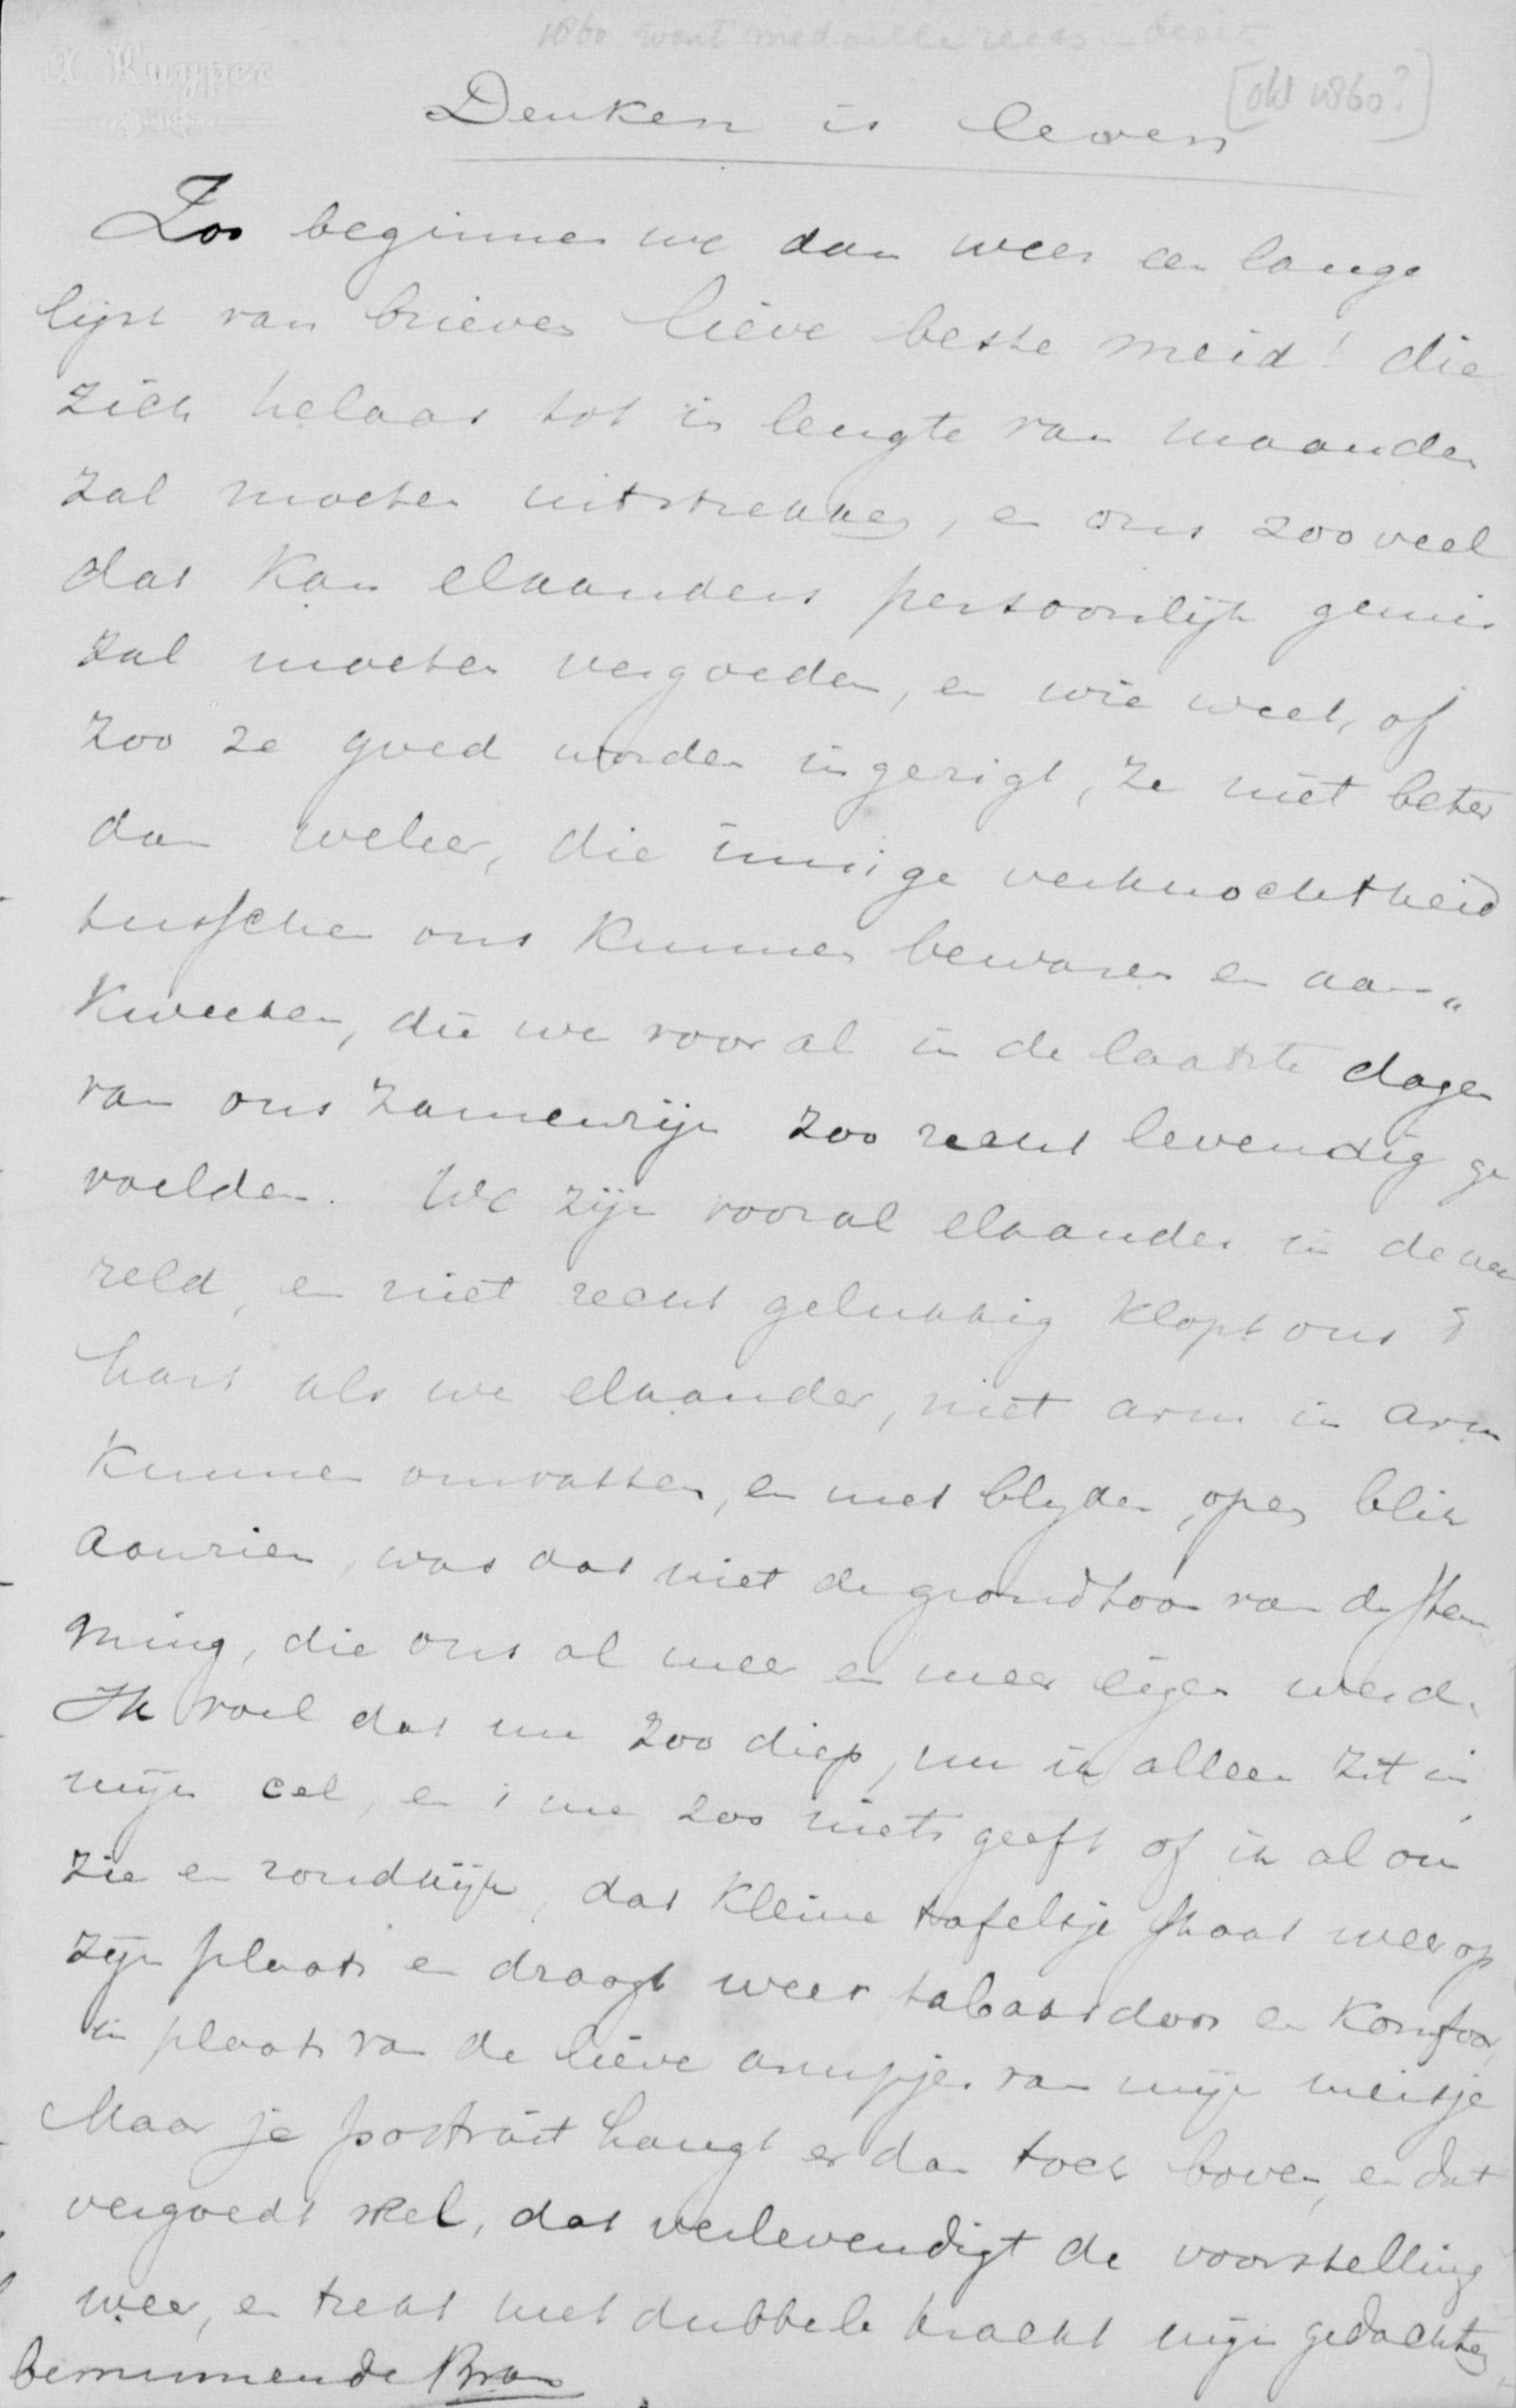 1860 want medaille reeds in bezit
[okt 1860?]
A. Kuyper
Denken is leven
Zoo beginnen we dan weer een lange
lijst van brieven lieve beste meid! die
zich helaas tot in lengte van maanden
zal moeten uitstrekken, en ons zooveel
dat kan elkanders persoonlijk gemis
zal moeten vergoeden, en wie weet, of
zoo ze goed worden ingerigt, ze niet beter
dan weleer, die innige verknochtheid
tusschen ons kunnen bewaren en aan„
kweeken, die we vooral in de laatste dagen
van ons zamenzijn zoo recht levendig ge
voelden. We zijn vooral elkander in de we
reld, en niet recht gelukkig klopt ons 't
hart als we elkander, niet arm in arm
kunnen omvatten, en met blyden, open blik
aanzien, was dat niet de grondtoon van de stem
ming, die ons al meer en meer eigen werd.
Ik voel dat nu zoo diep, nu ik alleen zit in
mijn cel, en 't me zoo niets geeft of ik al om
zie en rondkijk, dat kleine tafeltje staat weer op
zijn plaats en draagt weer tabaksdoos en komfoor,
in plaats van de lieve armpjes van mijn meisje
Maar je portrait hangt er dan toch boven, en dat
vergoedt veel, dat verlevendigt de voorstelling
weer, en trekt met dubbele kracht mijn gedachten
beminnende Bram